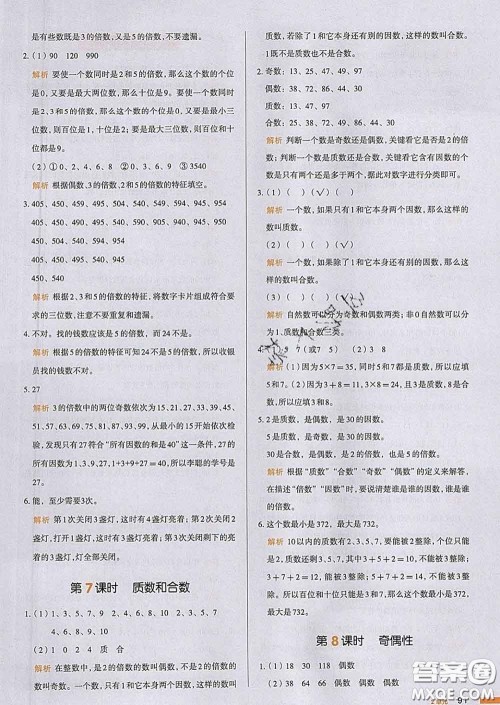 是有些数既是3的倍数,又是5的倍数,不要遗漏。
2. (1) 90 120 990
解析 要使一个数同时是2和5的倍数,那么这个数的个位是0,又是最大两位数,那么十位是9;要使一个数同时是2,3和5的倍数,那么这个数的个位是0,又是最小三位数,则百位是1,十位是2;又是最大三位数,则百位和十位都是9。
(2) ①0、2、4、6、8 ②0、3、6、9 ③3540
解析 根据偶数,3的倍数的特征填空。
3. 405、450、495、504、540、549、594、945、954
450、504、540、594、954
405、450、495、540、945
450、540
解析 根据2、3和5的倍数的特征,将数字卡片组成符合要求的三位数,注意不要重复和遗漏。
4. 不对。找的钱数应该是5的倍数,而24不是。
解析 根据5的倍数的特征可知24不是5的倍数,所以收银员找的钱数不对。
5. 27
解析 3的倍数中的两位奇数依次为15、21、27、33、39、45、51、57、63、69、75、81、87、93、99,逐个分析后,发现只有27符合“所有因数的和是40”这一条件,27的因数有1、3、9、27,1+3+9+27=40,所以李聪的学号是27。
6. 能,至少需要3次。
解析 第1次关闭3盏灯,这时有4盏灯亮着;第2次关闭2盏灯,打开1盏灯,这时有3盏灯亮着;第3次关闭亮着的3盏灯,灯全部关闭。
第7课时 质数和合数
1. (1) 1、3、5、7、9 2、4、6、8、10 2、3、5、7
4、6、8、9、10
(2) 1 0 2 4 质 合
解析 在整数中,是2的倍数的数叫偶数,不是2的倍数的
质数,若除了1和它本身还有别的因数,这样的数叫合数。
2. 奇数:13、25、47、49、97
偶数:36、38、72、86、64、44、30
质数:13、47、97
合数:25、36、38、49、72、86、64、44、30
解析 判断一个数是奇数还是偶数,关键看它是否是2的倍数;判断一个数是质数还是合数,关键看它的因数的个数是只有两个还是多于两个,据此对数字进行分类即可。
3. (1) ( ) ( ) (√)
解析 一个数,如果只有1和它本身两个因数,那么这样的数叫质数。
(2) ( ) (√) ( )
解析 一个数,如果除了1和它本身还有别的因数,那么这样的数叫合数。
(3) (√) ( ) ( )
解析 自然数可分为奇数和偶数两类;非0自然数可以分为1、质数和合数三类。
5 7(或7 5) (2) 3 8
解析 (1) 因为5×7=35,同时5和7都是质数,所以应填5和7。(2) 因为3+8=11,3×8=24,且3是质数,8是合数,所以应填3和8。
5. 2是质数,是偶数,是30的因数。
3是质数,是奇数,是30的因数。
30是合数,是偶数,是30的因数。
解析 根据“质数”“合数”“奇数”“偶数”的定义来解答,在描述“倍数”“因数”时,要说清楚谁是谁的倍数,谁是谁的因数。
6. 这个数最小是372,最大是732。
解析 10以内的质数有2,3,5,7,要能被2整除,个位只能是2,质数还剩3,5,7,其中3+5+2=10,不能被3整除,3+7+2=12,能被3整除,5+7+2=14,不能被3整除,所以百位和十位上的数字只能是3和7,这个数最小是372,最大是732。
第8课时 奇偶性
1. (1) 18 30 118 偶数
(2) 16 38 86 偶数
答案圈
MXQE.COM
91